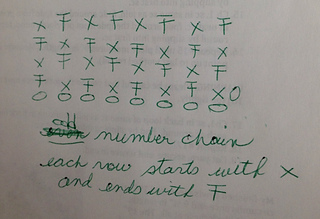 x F x F x F x F
F x F x F x F x
x F x F x F x F
F x F x F x F x O
O O O O O O O O
odd
number chain
each row starts with x
and ends with F